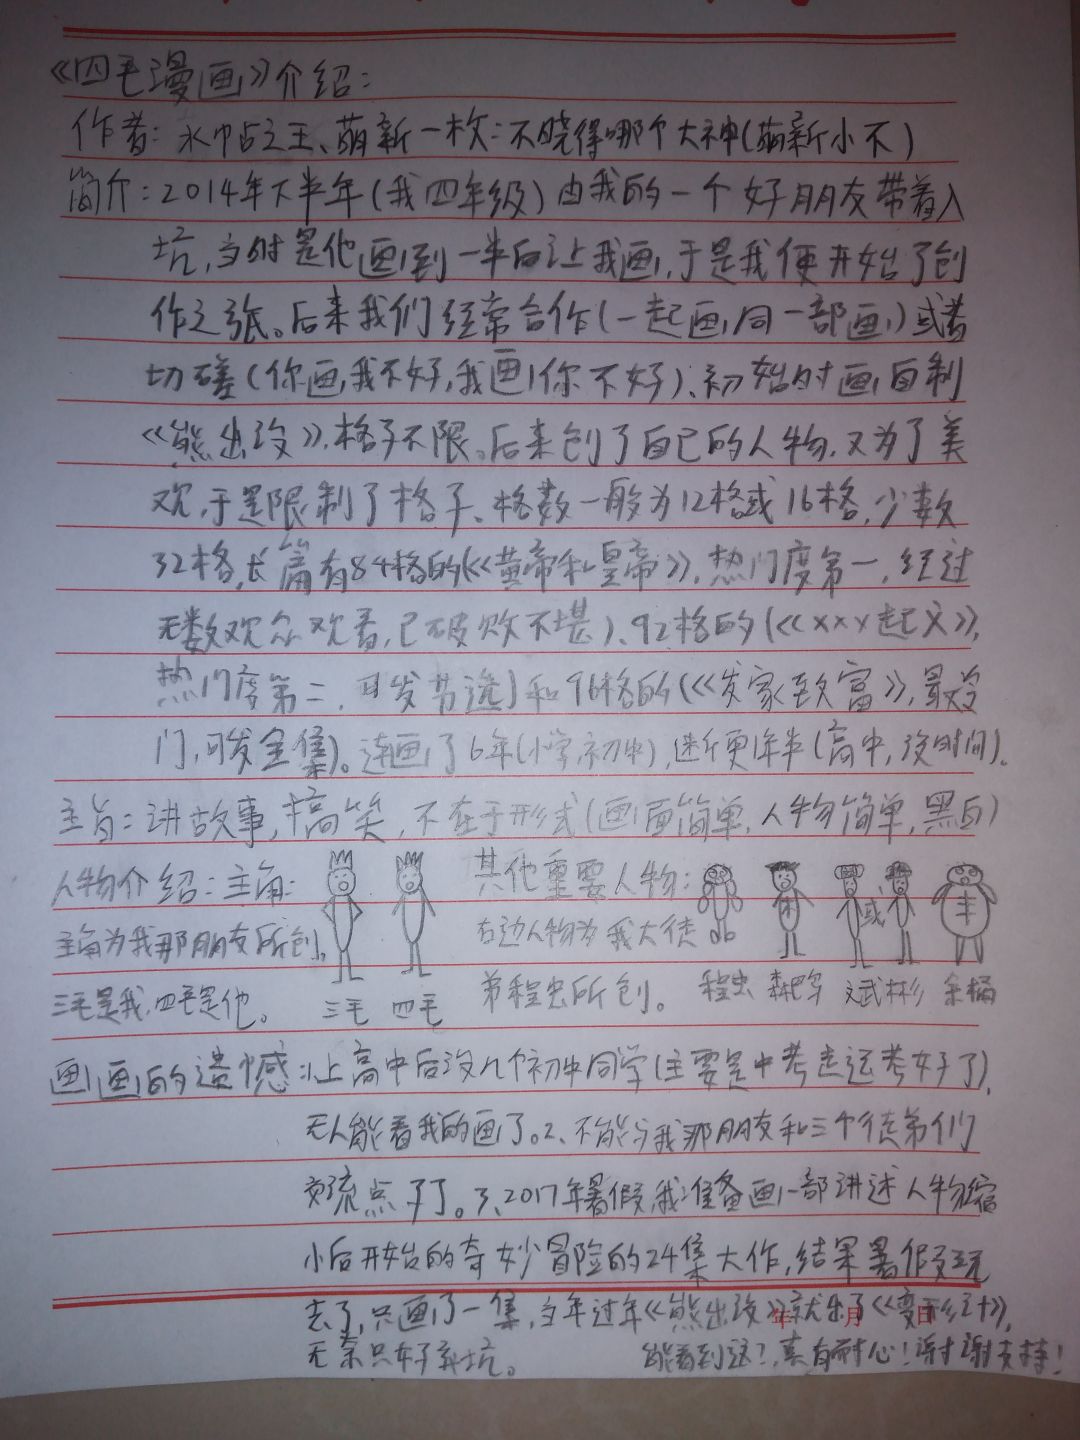 《四毛漫画》介绍：
作者：水帖之王、萌新一枚：不晓得哪个大神（萌新小不）
简介：2014年下半年（我四年级）由我的一个好朋友带着入
坑，当时是他画到一半后让我画，于是我便开始了创
作之旅。后来我们经常合作（一起画同一部画）或者
切磋（你画我不好，我画你不好）、初始时画自制
《熊出没》，格子不限。后来创了自己的人物，又为了美
观，于是限制了格子、格数一般为12格或16格，少数
32格，长篇有84格的（《黄帝和皇帝》，热门度第一，经过
无数观众观看，已破败不堪）、92格的（《×××起义》，
热门度第二，可发节选）和96格的（《发家致富》，最没
门，可发全集）。连画了6年（小学，初中），断更1年半（高中，没时间）。
主旨：讲故事，搞笑，不在于形式（画面简单，人物简单，黑白）
人物介绍：主角：
其他重要人物：
或
主角为我那朋友所创，
右边人物为我大徒
三毛是我，四毛是他。
三毛 四毛
弟程虫所创。
程虫 文武彬 余桶
画画的遗憾：1、上高中后没几个初中同学（主要是中考走运考好了），
无人能看我的画了。2、不能与我那朋友和三个徒弟们
交流点子了。3、2017年暑假，我准备画一部讲述人物缩
小后开始的奇妙冒险的24集大作，结果暑假玩
去了，只画了一集，当年过年《熊出没》就出了《变形计》，
年 月 日
无奈只好弃坑。
能看到这？，真有耐心！谢谢支持！